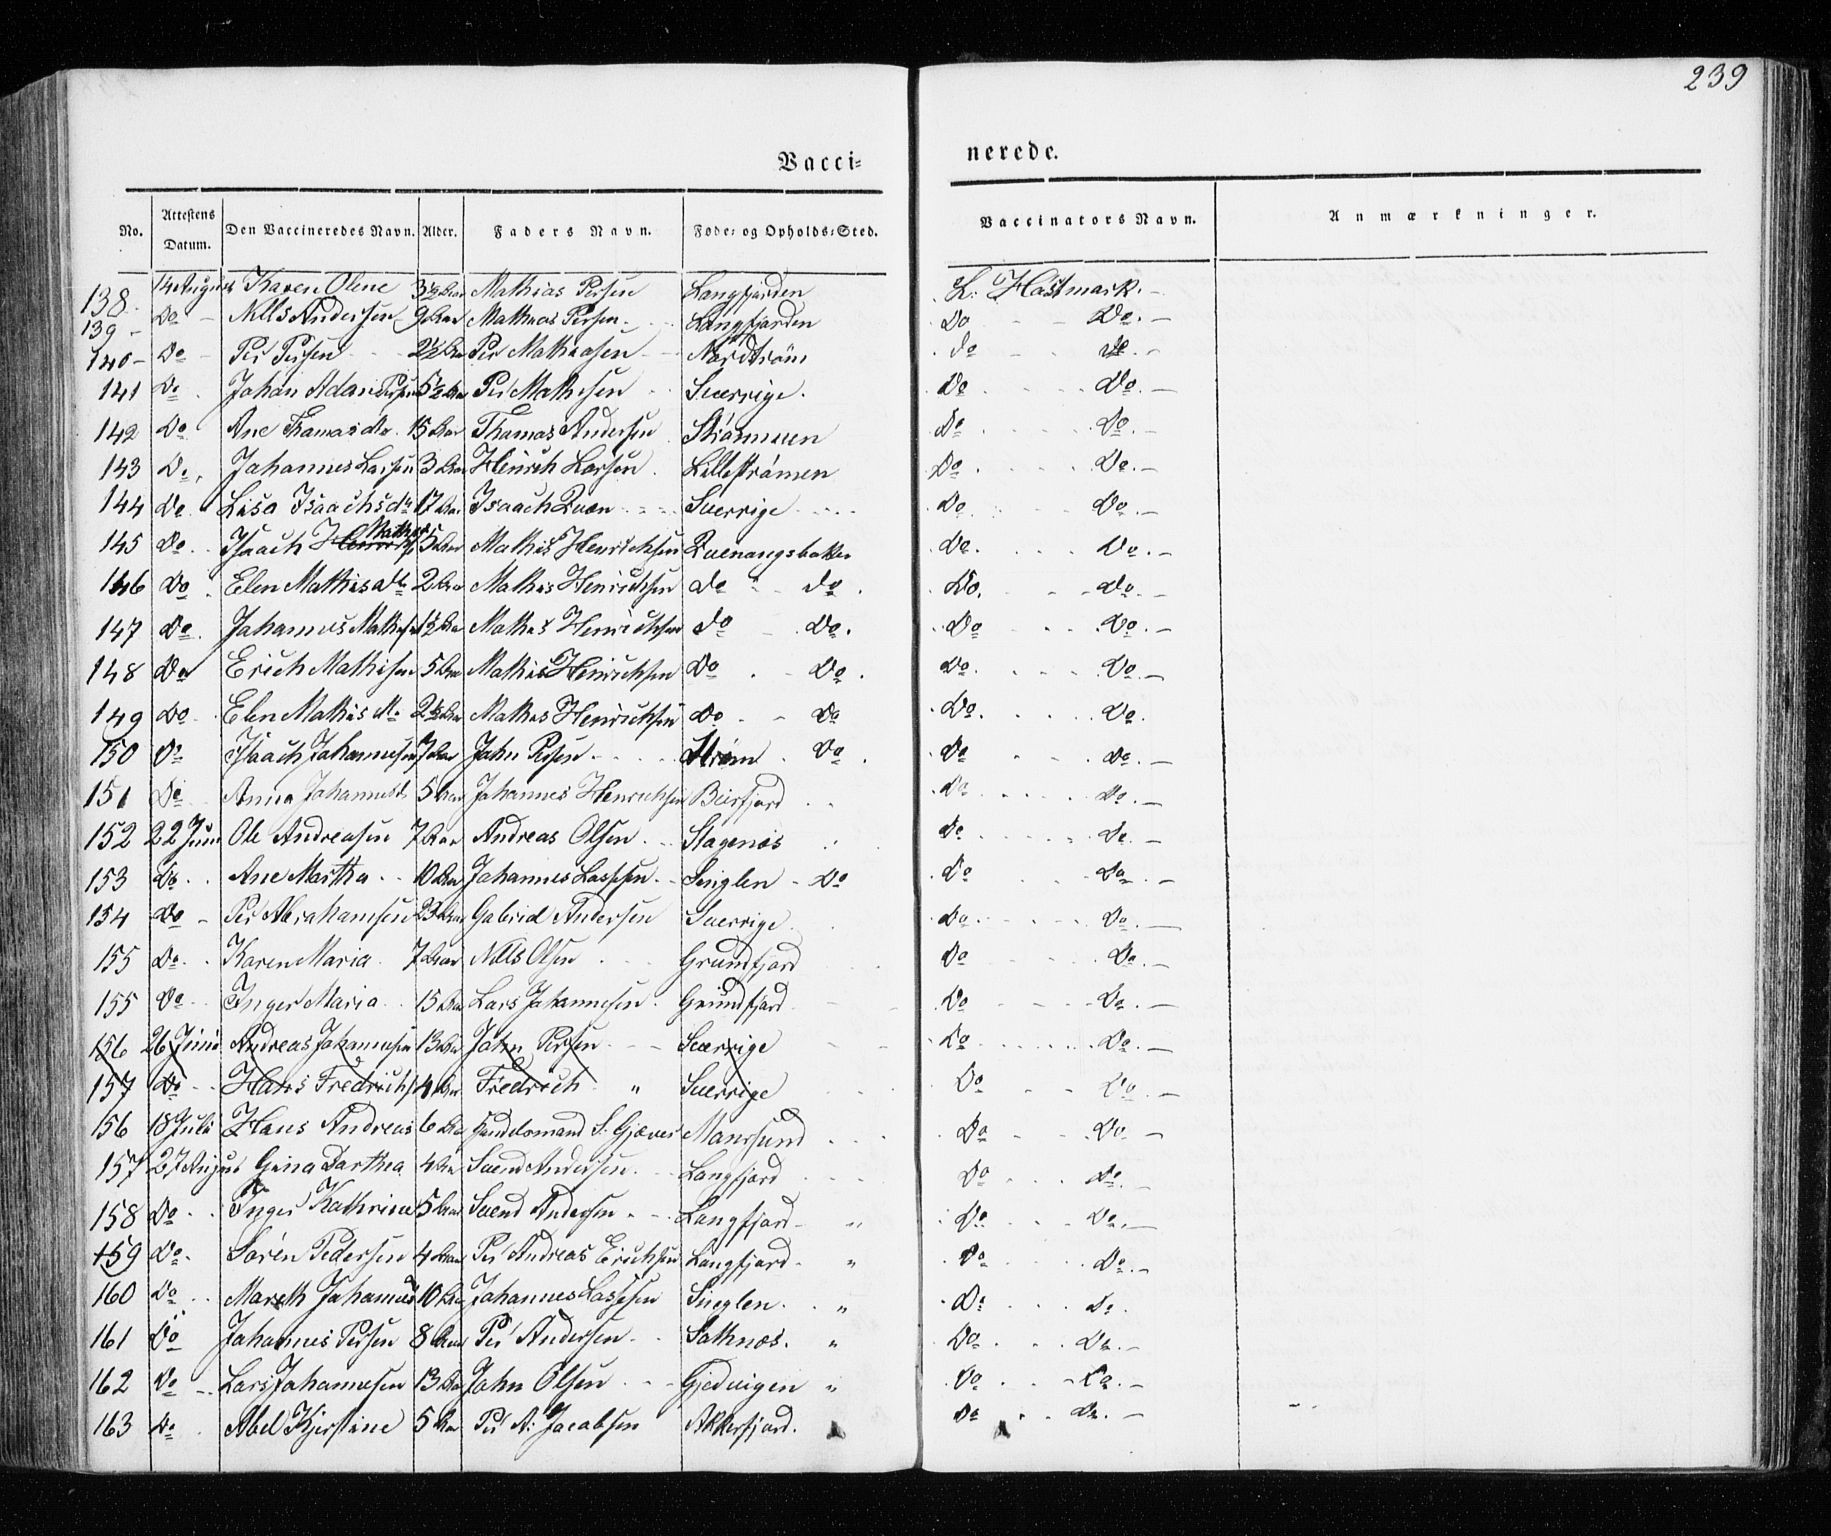 239
Vacci= nerede.
No. Attestens Datum. Den Vaccineredes Navn. Alder. Faders Navn. Føde- og Opholds-Sted. Vaccinators Navn. Anmærkninger.
138 14 August Karen Oline 3½ Aar Mathias Persen Langfjorden L. Hastmark. -
139 - Do - Nills Andersen 9 Aar Mathias Persen - Langfjorden Do - - Do. -
140 - Do - Per Persen - - 2½ Aar Per Mathiasen - Nordstrøm do - - do. -
141 Do. Johan Adam Persen 5½ Aar Per Mathisen Sverrige. Do - - Do. -
142 Do Ane Thomasdr. 15 Aar Thomas Andersen Strømmen Do - - Do. -
143 Do, Johannes Larsen 3 Aar Henrich Larsen. Lillestrømen Do - - Do. -
144 Do. Lisa Isaachsdr 17 Aar Isaach Qvæn - - Sverrige - - - Do - - Do. -
145 Do. Isaach Mathis 5 Aar Mathis Henrichsen Qvenangsbotten Do. - - Do. -
146 Do. Elen Mathisdr 2 Aar Mathis Henrichsen do - do. Do. - - Do. -
147 Do. Johannes Mathisen 1½ Aar Mathis Henrichsen do - Do. Do - - Do. -
148 Do Erich Mathisen 5 Aar Mathis Henrichsen Do - Do. Do. - - Do. -
149 Do. Elen Mathisdr 2½ Aar Mathis Henrichsen Do - Do Do. - - Do.
150 Do Isaach Johannesen 7 Aar John Persen - - Strøm - Do. Do - - Do. -
151 Do Anna Johannesd 5 Aar Johannes Henrichsen Beirfjord Do - - Do. -
152 22 Juni Ole Andreasen 7 Aar Andreas Olsen - - Slagenæs Do. - - Do. -
153 Do. Ane Martha - - 10 Aar Johannes Lassesen - Singlen - Do Do - - Do. -
154 Do - Per Abrahamsen 23 Aar Gabriel Andersen Sverrige. Do. - - Do. -
155 Do. Karen Maria. 7 Aar Nills Olsen - - Grundfjord Do - - Do. -
155 Do. Inger Maria - 15 Aar Lars Johannesen. Grundfjord - Do - - Do. -
156 26 Juni Andreas Johannesen 13 Aar John Persen - - Sverrige Do - - Do. -
157 Do - Hans Fredrichs 4 Aar Fredrich " Sverrige Do - - Do. -
156 18 Juli Hans Andreas 6 Aar Handelsmand S. Gjæver Maursund Do - - Do -
157 27 August Gina Darthea 4 Aar Svend Andersen. - Langfjord Do - - Do. -
158 Do. Inger Kathrine 5 Aar Svend Andersen. - Langfjord - " Do - - Do. -
159 Do. Søren Pedersen 4 Aar Per Andreas Erichsen Langfjord - " Do - - Do. -
160 Do. Mareth Johannesd 10 Aar Johannes Lassesen Singlen. - " Do - - Do.
161 Do Johannes Persen 8 Aar Per Andersen. - Sathnæs. " Do - - Do. -
162 Do - Lars Johannesen 13 Aar John Olsen - - Gjedvigen " Do - - Do. -
163 Do. Abel Kjerstine 5 Aar Per A: Jacobsen Akkerfjord. Do - - Do. -